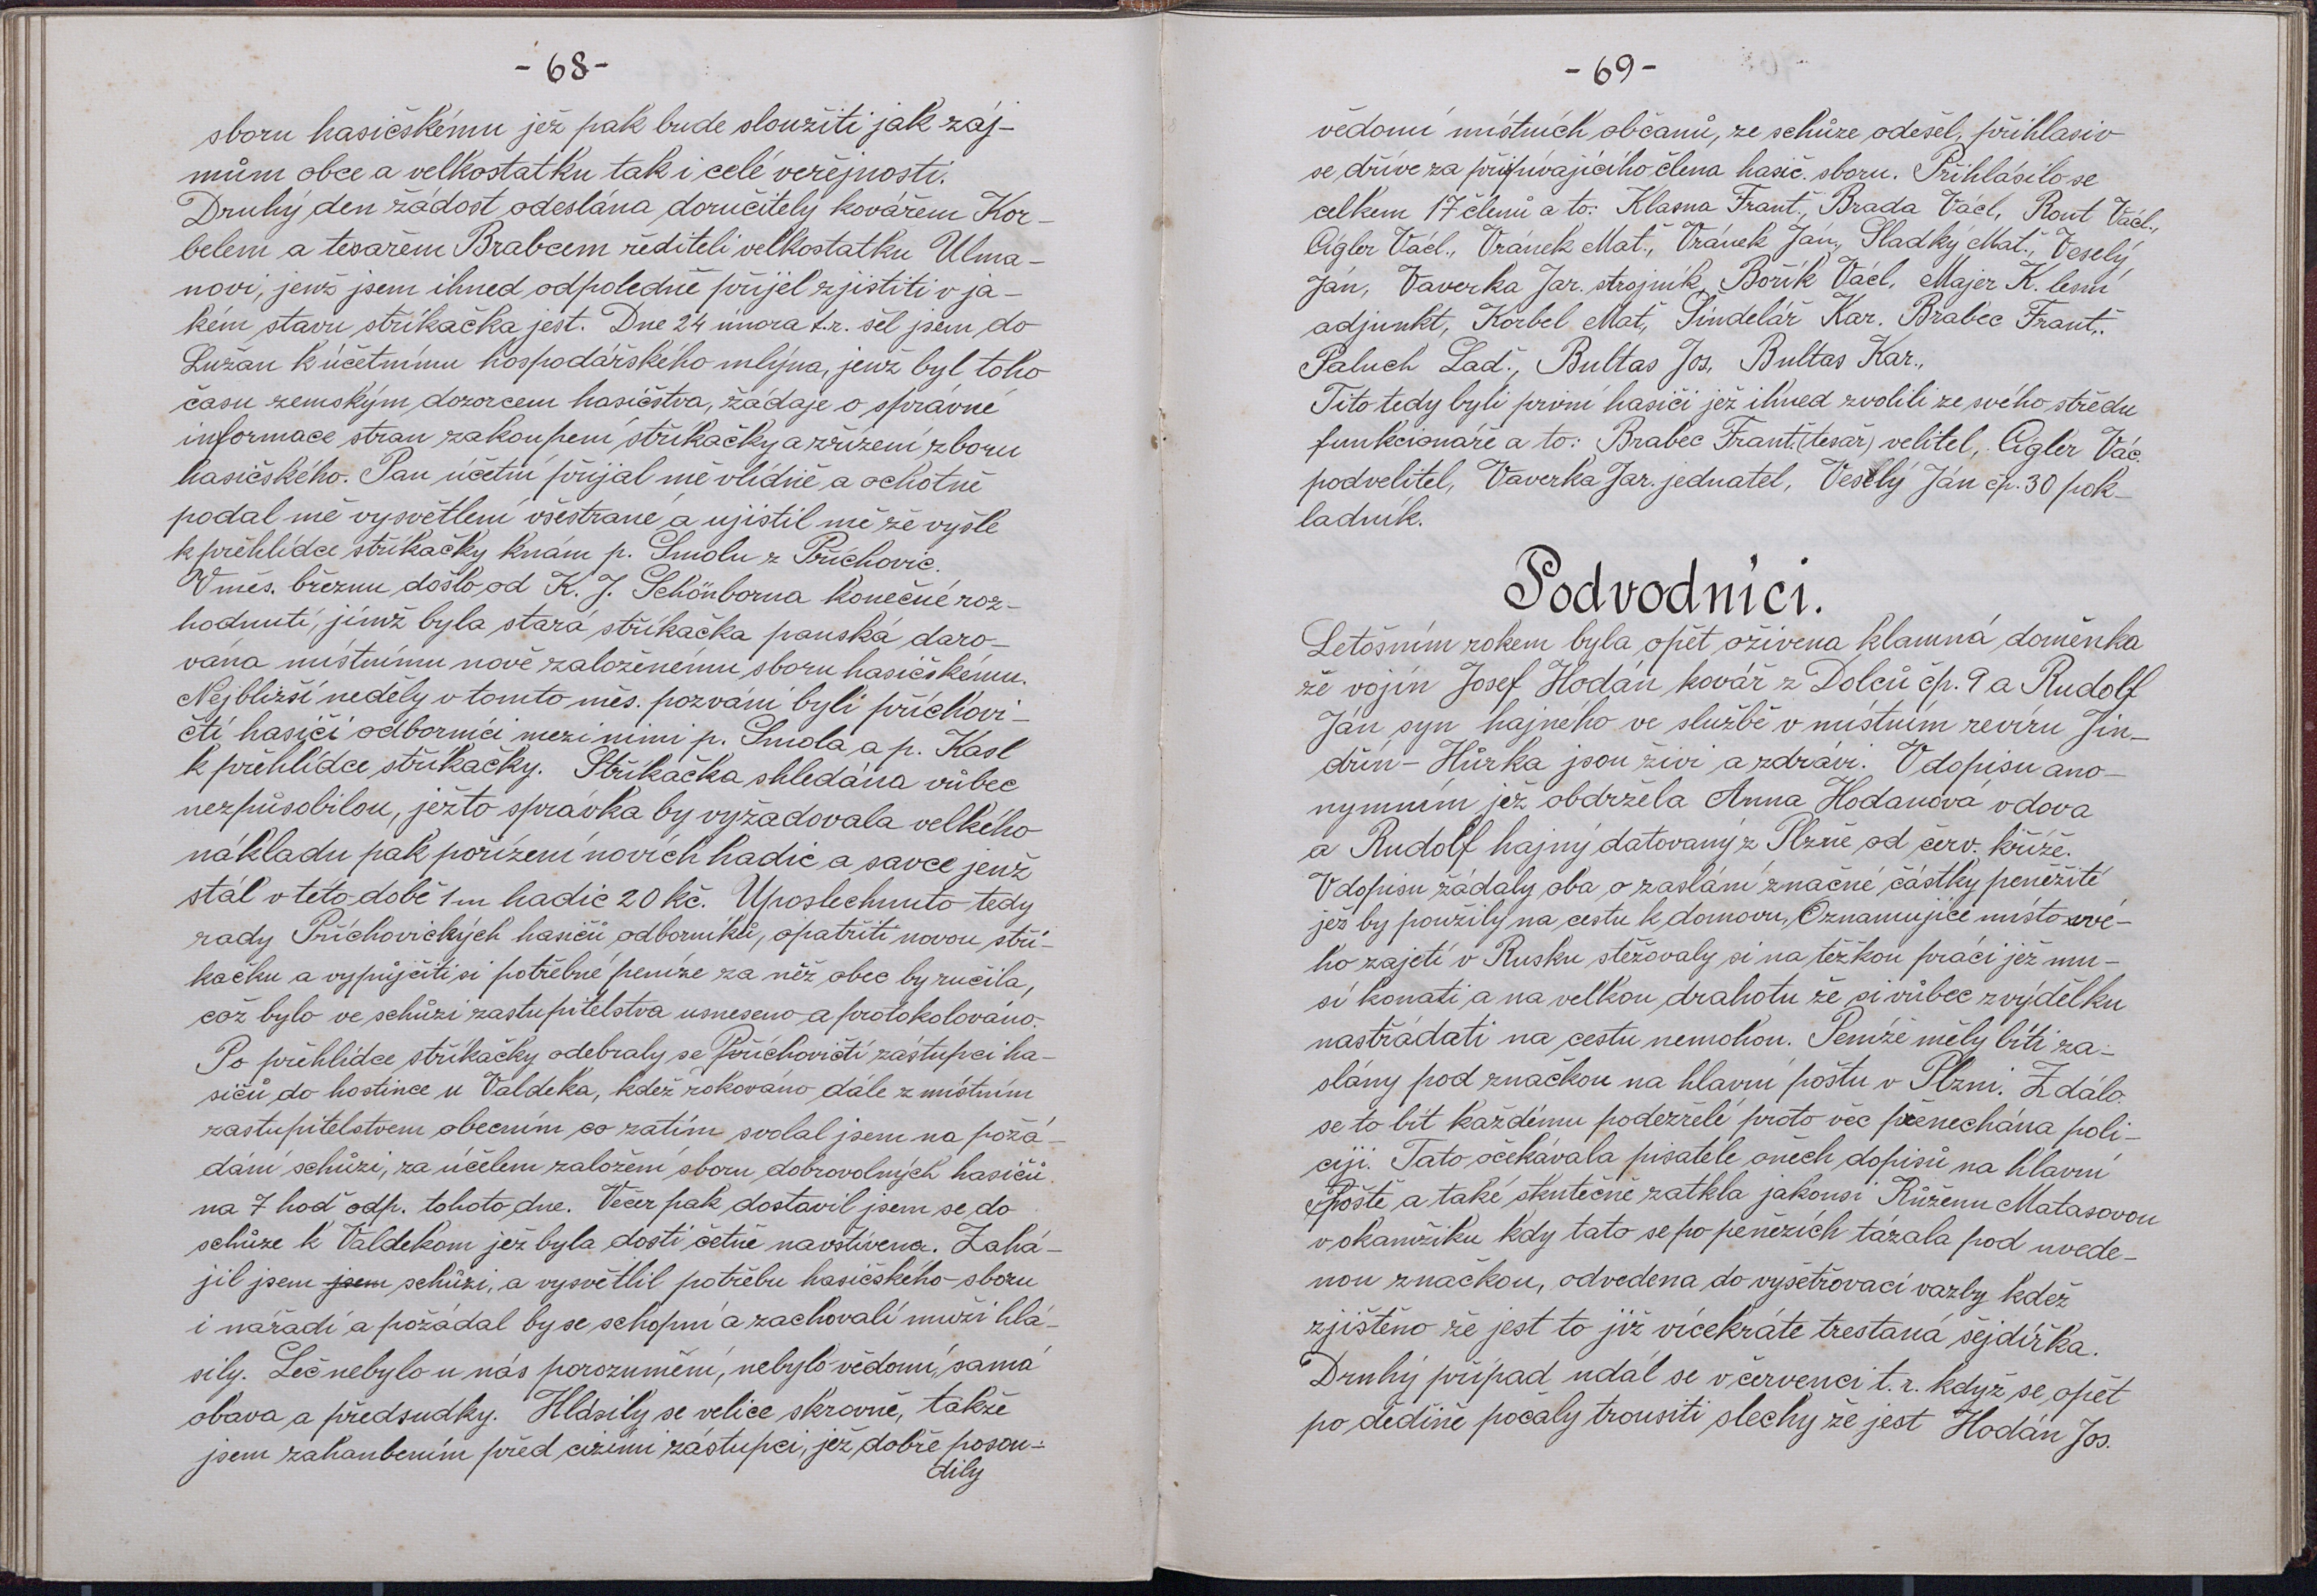 - 68 -
sboru hasičskému jež pak bude sloužiti jak záj-
mům obce a velkostatku tak i celé veřejnosti.
Druhý den žádost odeslána doručitely kovářem Kor-
belem a tesařem Brabcem řediteli velkostatku Ulma-
novi, jenž jsem ihned odpoledně přijel zjistiti v ja-
kém stavu stříkačka jest. Dne 24 února t.r. šel jsem do
Lužan k účetnímu hospodářského mlýna, jenž byl toho
času zemským dozorcem hasičstva, žádaje o správné
informace stran zakoupení stříkačky a zřízení zboru
hasičského. Pan účetní přijal mě vlídně a ochotně
podal mě vysvětlení všestrané a ujistil mě že vyšle
k přehlídce stříkačky knám p. Smolu z Příchovic.
V měs. březnu došlo od K. J. Schönborna konečné roz-
hodnutí, jímž byla stará stříkačka panská daro-
vána místnímu nově založenému sboru hasičskému.
Nejbližší neděly v tomto měs. pozváni byli příchovi-
čtí hasiči odborníci mezi nimi p. Smola a p. Kasl
k přehlídce stříkačky. Stříkačka shledána vůbec
nezpůsobilou, ježto správka by vyžadovala velkého
nákladu pak pořízení novích hadic a savce jenž
stál v této době 1 m hadic 20 kč. Uposlechnuto tedy
rady Příchovických hasičů odborníků, opatřiti novou stří-
kačku a vypůjčiti si potřebné peníze za něž obec by ručila,
což bylo ve schůzi zastupitelstva usneseno a protokolováno.
Po přehlídce stříkačky odebraly se Příchovičtí zástupci ha-
sičů do hostince u Valdeka, kdež rokováno dále z místním
zastupitelstvem obecním co zatím svolal jsem na požá-
dání schůzi, za účelem založení sboru dobrovolných hasičů
na 7 hod odp. tohoto dne. Večer pak dostavil jsem se do
schůze k Valdekom jež byla dosti četně navštívena. Zahá-
jil jsem jsem schůzi, a vysvětlil potřebu hasičského sboru
i nářadí a požádal by se schopní a zachovalí muži hlá-
sily. Leč nebylo u nás porozumění, nebylo vědomí, samá
obava a předsudky. Hlásily se velice skrovně, takže
jsem zahanbením před cizími zástupci, jež dobře posou-
dily
- 69 -
vědomí místních občanů, ze schůze odešel, přihlasiv
se dříve za přispívajícího člena hasič. sboru. Přihlásilo se
celkem 17 členů a to: Klasna Frant., Brada Václ, Rout Václ.,
Aigler Václ., Vránek Mat., Vránek Ján, Sladký Mat., Veselý
Ján, Vaverka Jar. strojník, Bořík Václ, Majer K. lesní
adjunkt, Korbel Mat, Šindelář Kar. Brabec Frant.
Paluch Lad., Bultas Jos, Bultas Kar.,
Tito tedy byli první hasiči jež ihned zvolili ze svého středu
funkcionáře a to: Brabec Frant. (tesař) velitel, Aigler Vác.
podvelitel, Vaverka Jar. jednatel, Veselý Ján čp. 30 pok-
ladník.
Podvodníci.
Letošním rokem byla opět oživena klamná doměnka
že vojín Josef Hodán kovář z Dolců čp. 9 a Rudolf
Ján syn hajného ve službě v místním revíru Jin-
dřín - Hůrka jsou živi a zdrávi. V dopisu ano-
nymním jež obdržela Anna Hodanová vdova
a Rudolf hajný datovaný z Plzně od červ. kříže.
V dopisu žádaly oba o zaslání značné částky peněžité
jež by použily na cestu k domovu, Oznamujíce místo své-
ho zajetí v Rusku stěžovaly si na těžkou práci jež mu-
sí konati a na velkou drahotu že si vůbec z výdělku
nastřádati na cestu nemohou. Peníze měly bíti za-
slány pod značkou na hlavní poštu v Plzni. Zdálo
se to bít každému podezřelé proto věc přenechána poli-
ciji. Tato očekávala pisatele oněch dopisů na hlavní
Poště a také skutečně zatkla jakousi Růženu Matasovou
v okamžiku kdy tato se po penězích tázala pod uvede-
nou značkou, odvedena do vyšetřovací vazby kdež
zjištěno že jest to již vícekráte trestaná šejdířka.
Druhý případ udál se v červenci t. r. když se opět
po dědině počaly trousiti slechy že jest Hodán Jos.